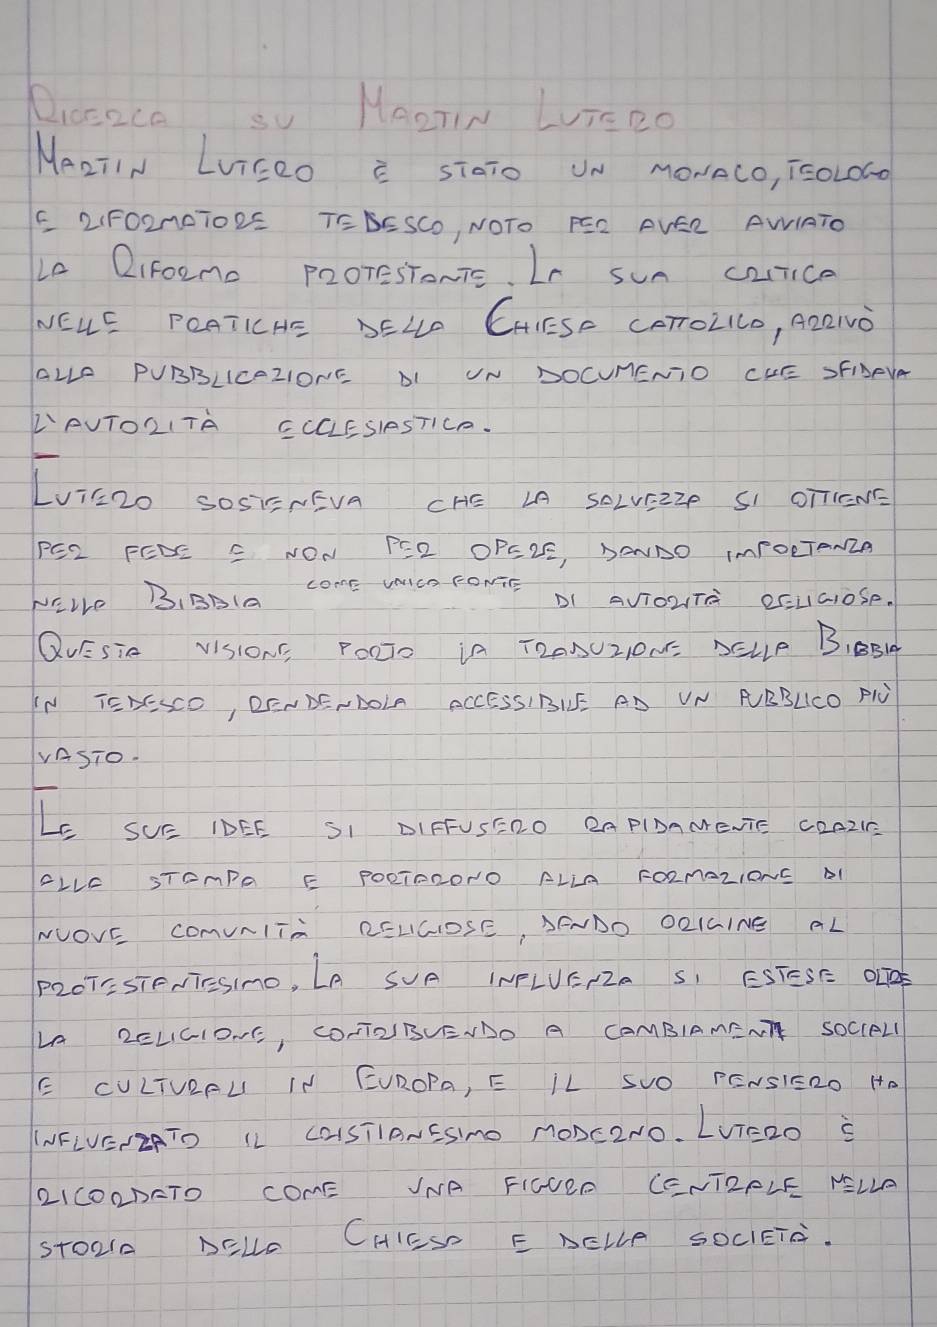 RICERCA SU MARTIN LUTERO
MARTIN LUTERO È STATO UN MONACO, TEOLOGO
E RIFORMATORE TEDESCO, NOTO PER AVER AVVIATO
LA RIFORMA PROTESTANTE. LA SUA CRITICA
NELLE PRATICHE DELLA CHIESA CATTOLICA, ARRIVÒ
ALLA PUBBLICAZIONE DI UN DOCUMENTO CHE SFIDAVA
L'AUTORITÀ ECCLESIASTICA.
LUTERO SOSTENEVA CHE LA SALVEZZA SI OTTIENE
PER FEDE E NON PER OPERE, DANDO IMPORTANZA
NELLA BIBBIA COME UNICA FONTE DI AUTORITÀ RELIGIOSA.
QUESTA VISIONE PORTO LA TRADUZIONE DELLA BIBBIA
IN TEDESCO, RENDENDOLA ACCESSIBILE AD UN PUBBLICO PIÙ
VASTO.
LE SUE IDEE SI DIFFUSERO RAPIDAMENTE GRAZIE
ALLA STAMPA E PORTARONO ALLA FORMAZIONE DI
NUOVE COMUNITÀ RELIGIOSE, DANDO ORIGINE AL
PROTESTANTESIMO. LA SUA INFLUENZA SI ESTESE OLTRE
LA RELIGIONE, CONTRIBUENDO A CAMBIAMENTI SOCIALI
E CULTURALI IN EUROPA, E IL SUO PENSIERO HA
INFLUENZATO IL CRISTIANESIMO MODERNO. LUTERO È
RICORDATO COME UNA FIGURA CENTRALE NELLA
STORIA DELLA CHIESA E DELLA SOCIETÀ.